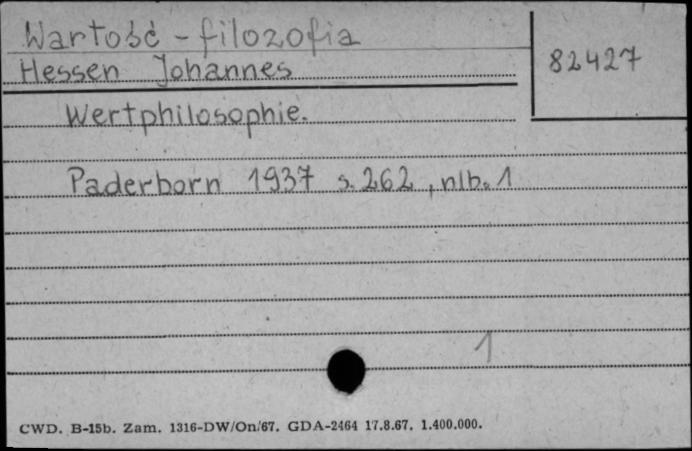 Wartość - filozofia
Hessen Johannes
82427
Wertphilosophie.
Paderborn 1937 s. 262, nlb. 1
1
CWD. B-15b. Zam. 1316-DW/On/67. GDA-2464 17.8.67. 1.400.000.